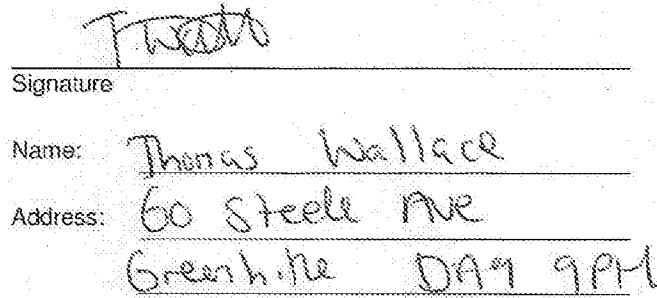 Signature
Name: Thomas Wallace
Address: 60 Steele Ave
Greenhithe DA9 9PH